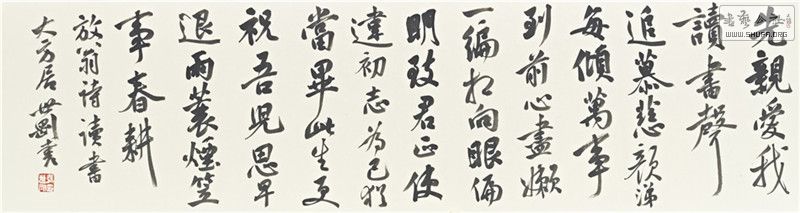 先親愛我
讀書聲
追慕慈顏涕
每傾萬事
到前心盡嬾
一編相向眼偏
明致君正使
違初志為己猶
當畢此生更
祝吾兒思早
退雨蓑煙笠
事春耕
放翁詩讀書
大方居世剛書
WWW.SHUGA.ORG